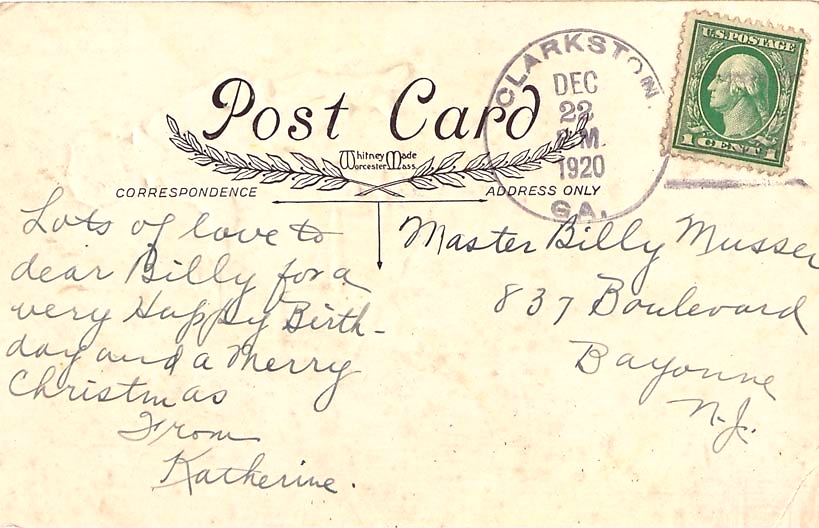 U.S. POSTAGE
1 CENT 1
CLARKSTON
DEC
22
P.M.
1920
GA.
Post Card
Whitney Made
Worcester Mass.
CORRESPONDENCE
ADDRESS ONLY
Lots of love to
dear Billy for a
very Happy Birth-
day and a Merry
Christmas
From
Katherine.
Master Billy Musser
837 Boulevard
Bayonne
N.J.